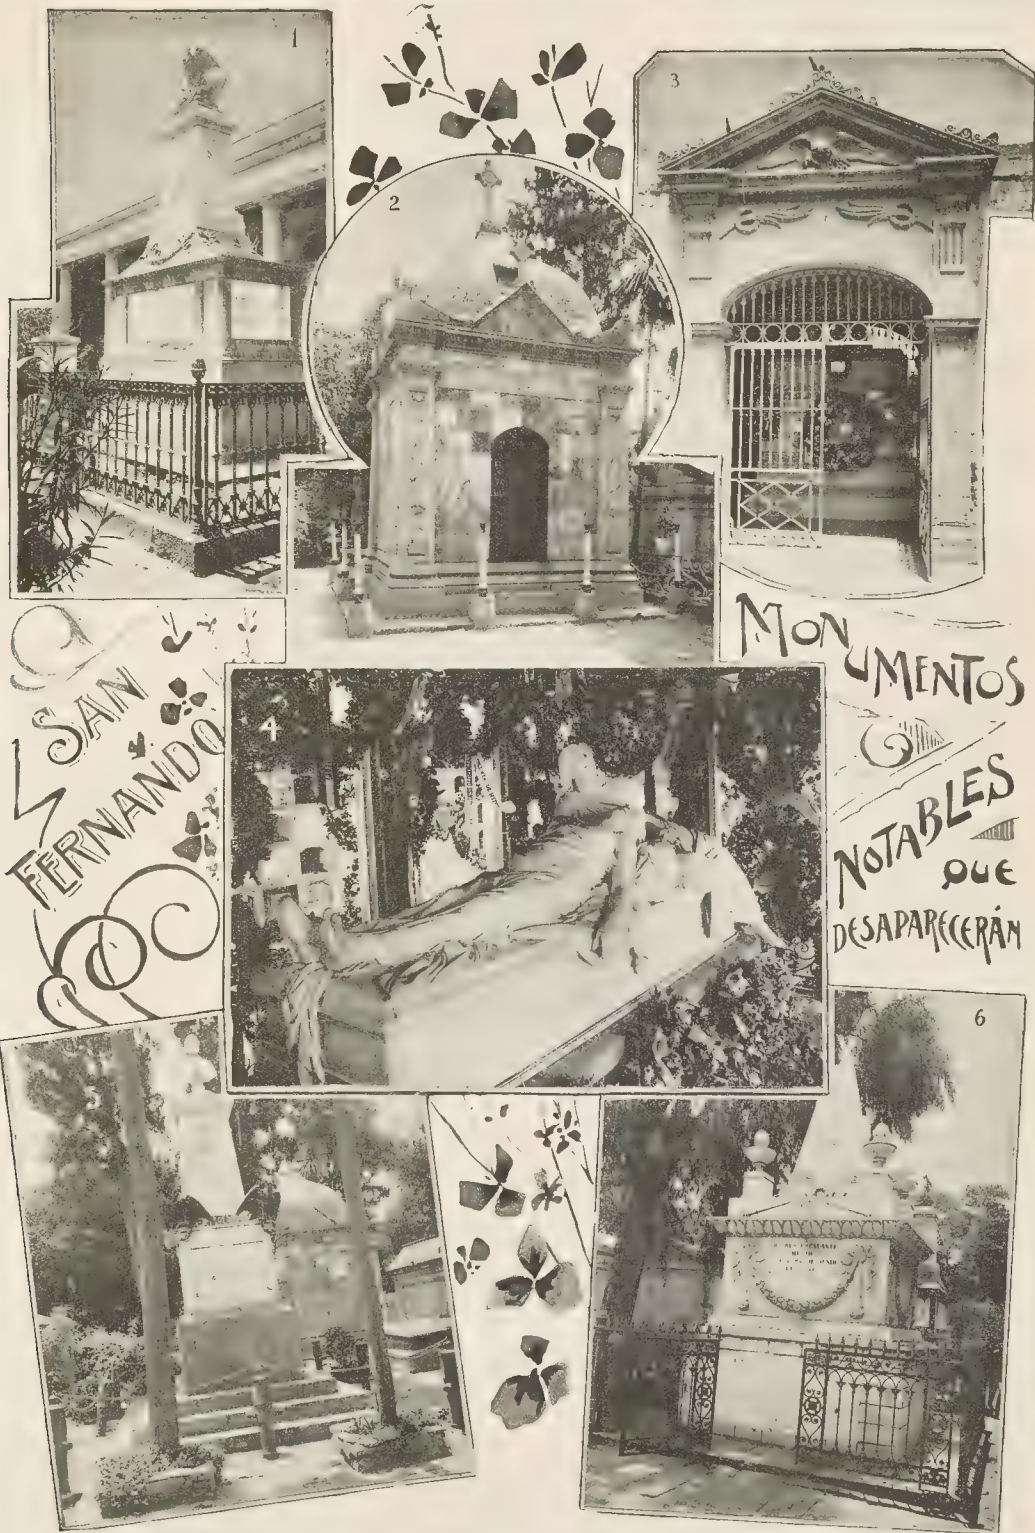 1
2
3
SAN
FERNANDO
MONUMENTOS
NOTABLES
QUE
DESAPARECERÁN
4
5
6